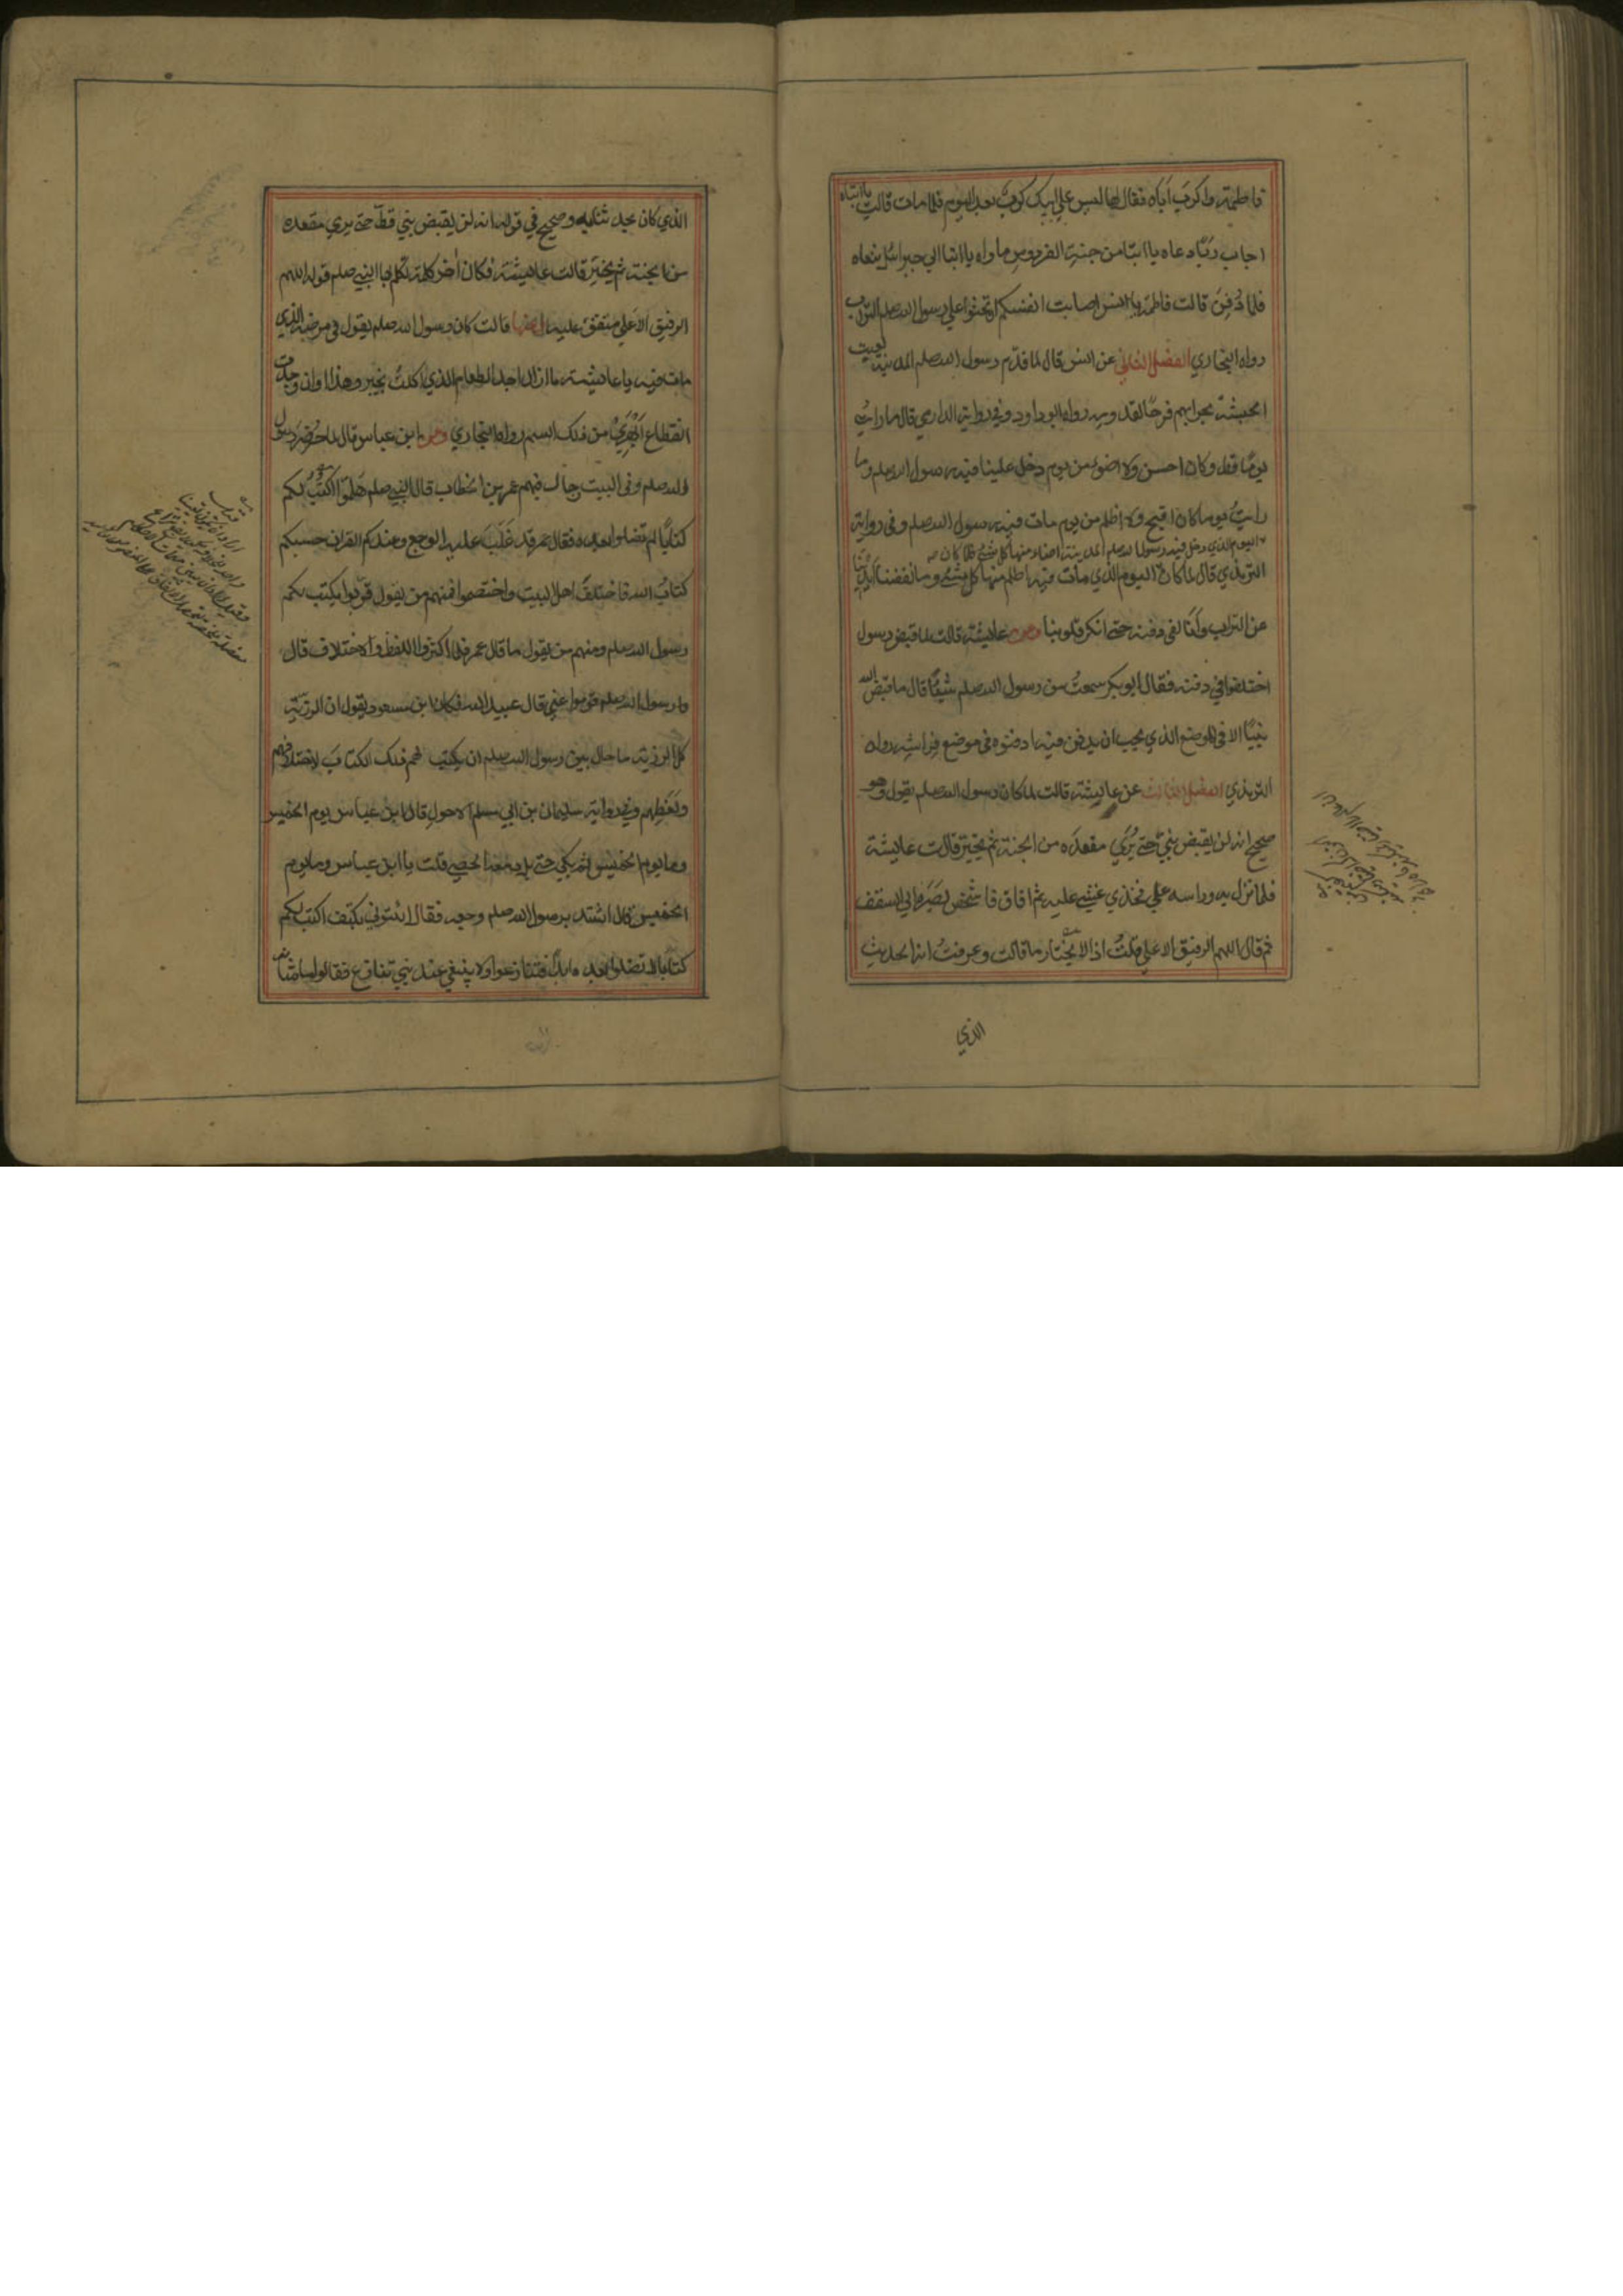 فاطمة واكرب اباه فقال لها ليس على ابيك كرب بعد اليوم فلما مات قالت يا ابتاه
اجاب ربا دعاه يا ابتا من جنة الفردوس ماواه يا ابتا الي جبرائيل ننعاه
فلما دُفِنَ قالت فاطمة يا انس اصابت انفسكم ان تحثوا علي رسول الله صلم التراب
رواه البخاري الفصل الثاني عن انس قال لما قدم رسول الله صلم المدينة لعبت
الحبشة بحرابهم فرحًا لقدومه رواه ابو داود وفي رواية الدارمي قال ما رايت
يومًا قط وكان احسن ولا اضوء من يوم دخل علينا فيه رسول الله صلم وما
رايتُ يوما كان اقبح ولا اظلم من يوم مات فيه رسول الله صلم وفي رواية
اليوم الذي دخل فيه رسول الله صلم المدينة اضاء منها كل شئ فلما كان
الترمذي قال لما كان اليوم الذي مات فيه اظلم منها كل شئ وما نفضنا ايدينا
عن التراب وانا لفي دفنه حتى انكرنا قلوبنا وعن عايشة قالت لما قبض رسول
اختلفوا في دفنه فقال ابو بكر سمعتُ من رسول الله صلم شيئًا قال ما قبض الله
نبيًا الا في الموضع الذي يحب ان يدفن فيه ادفنوه في موضع فراشه رواه
الترمذي الفصل الثالث عن عايشة قالت لما كان رسول الله صلم يقول وهو
صحيح انه لن يقبض نبي حتي يُرَي مقعدَه من الجنة ثم يخير قالت عايشة
فلما نزل به وراسه علي فخذي غشي عليه ثم افاق فاشخص بصره الي السقف
ثم قال اللهم الرفيق الاعلي قلتُ اذا لا يختارنا قالت وعرفتُ انه الحديث
الذي
الذي كان يحدثنا به وهو صحيح في قوله انه لن يقبض نبي قط حتى يري مقعده
من الجنة ثم يخير قالت عايشة فكان اخر كلمة تكلم بها النبي صلم قوله اللهم
الرفيق الاعلي متفق عليه وعنها قالت كان رسول الله صلم يقول في مرضه الذي
مات فيه يا عايشة ما ازال اجد الم الطعام الذي اكلتُ بخيبر وهذا اوان وجدت
انقطاع ابهري من ذلك السم رواه البخاري وعن ابن عباس قال لما حضر رسول
الله صلم وفي البيت رجال فيهم عمر بن الخطاب قال النبي صلم هلموا اكتب لكم
كتابًا لن تضلوا بعده فقال عمر قد غَلَبَ عليه الوجع وعندكم القران حسبكم
كتابُ الله فاختلف اهل البيت واختصموا فمنهم من يقول قربوا يكتب لكم
رسول الله صلم ومنهم من يقول ما قال عمر فلما اكثروا اللغط والاختلاف قال
رسول الله صلم قوموا عني قال عبيد الله فكان ابن يقول ان الرزية
كل الرزية ما حال بين رسول الله صلم ان يكتب لهم ذلك الكتاب لاختلافهم
ولغطهم وفي رواية سليمان بن ابي مسلم الاحول قال ابن عباس يوم الخميس
وما يوم الخميس ثم بكي حتى بل دمعه الحصي قلت يا ابن عباس وما يوم
الخميس قال اشتد برسول الله صلم وجعه فقال ائتوني بكتف اكتب لكم
كتابًا لا تضلوا بعده ابدًا فتنازعوا ولا ينبغي عند نبي تنازع فقالوا ما شانه